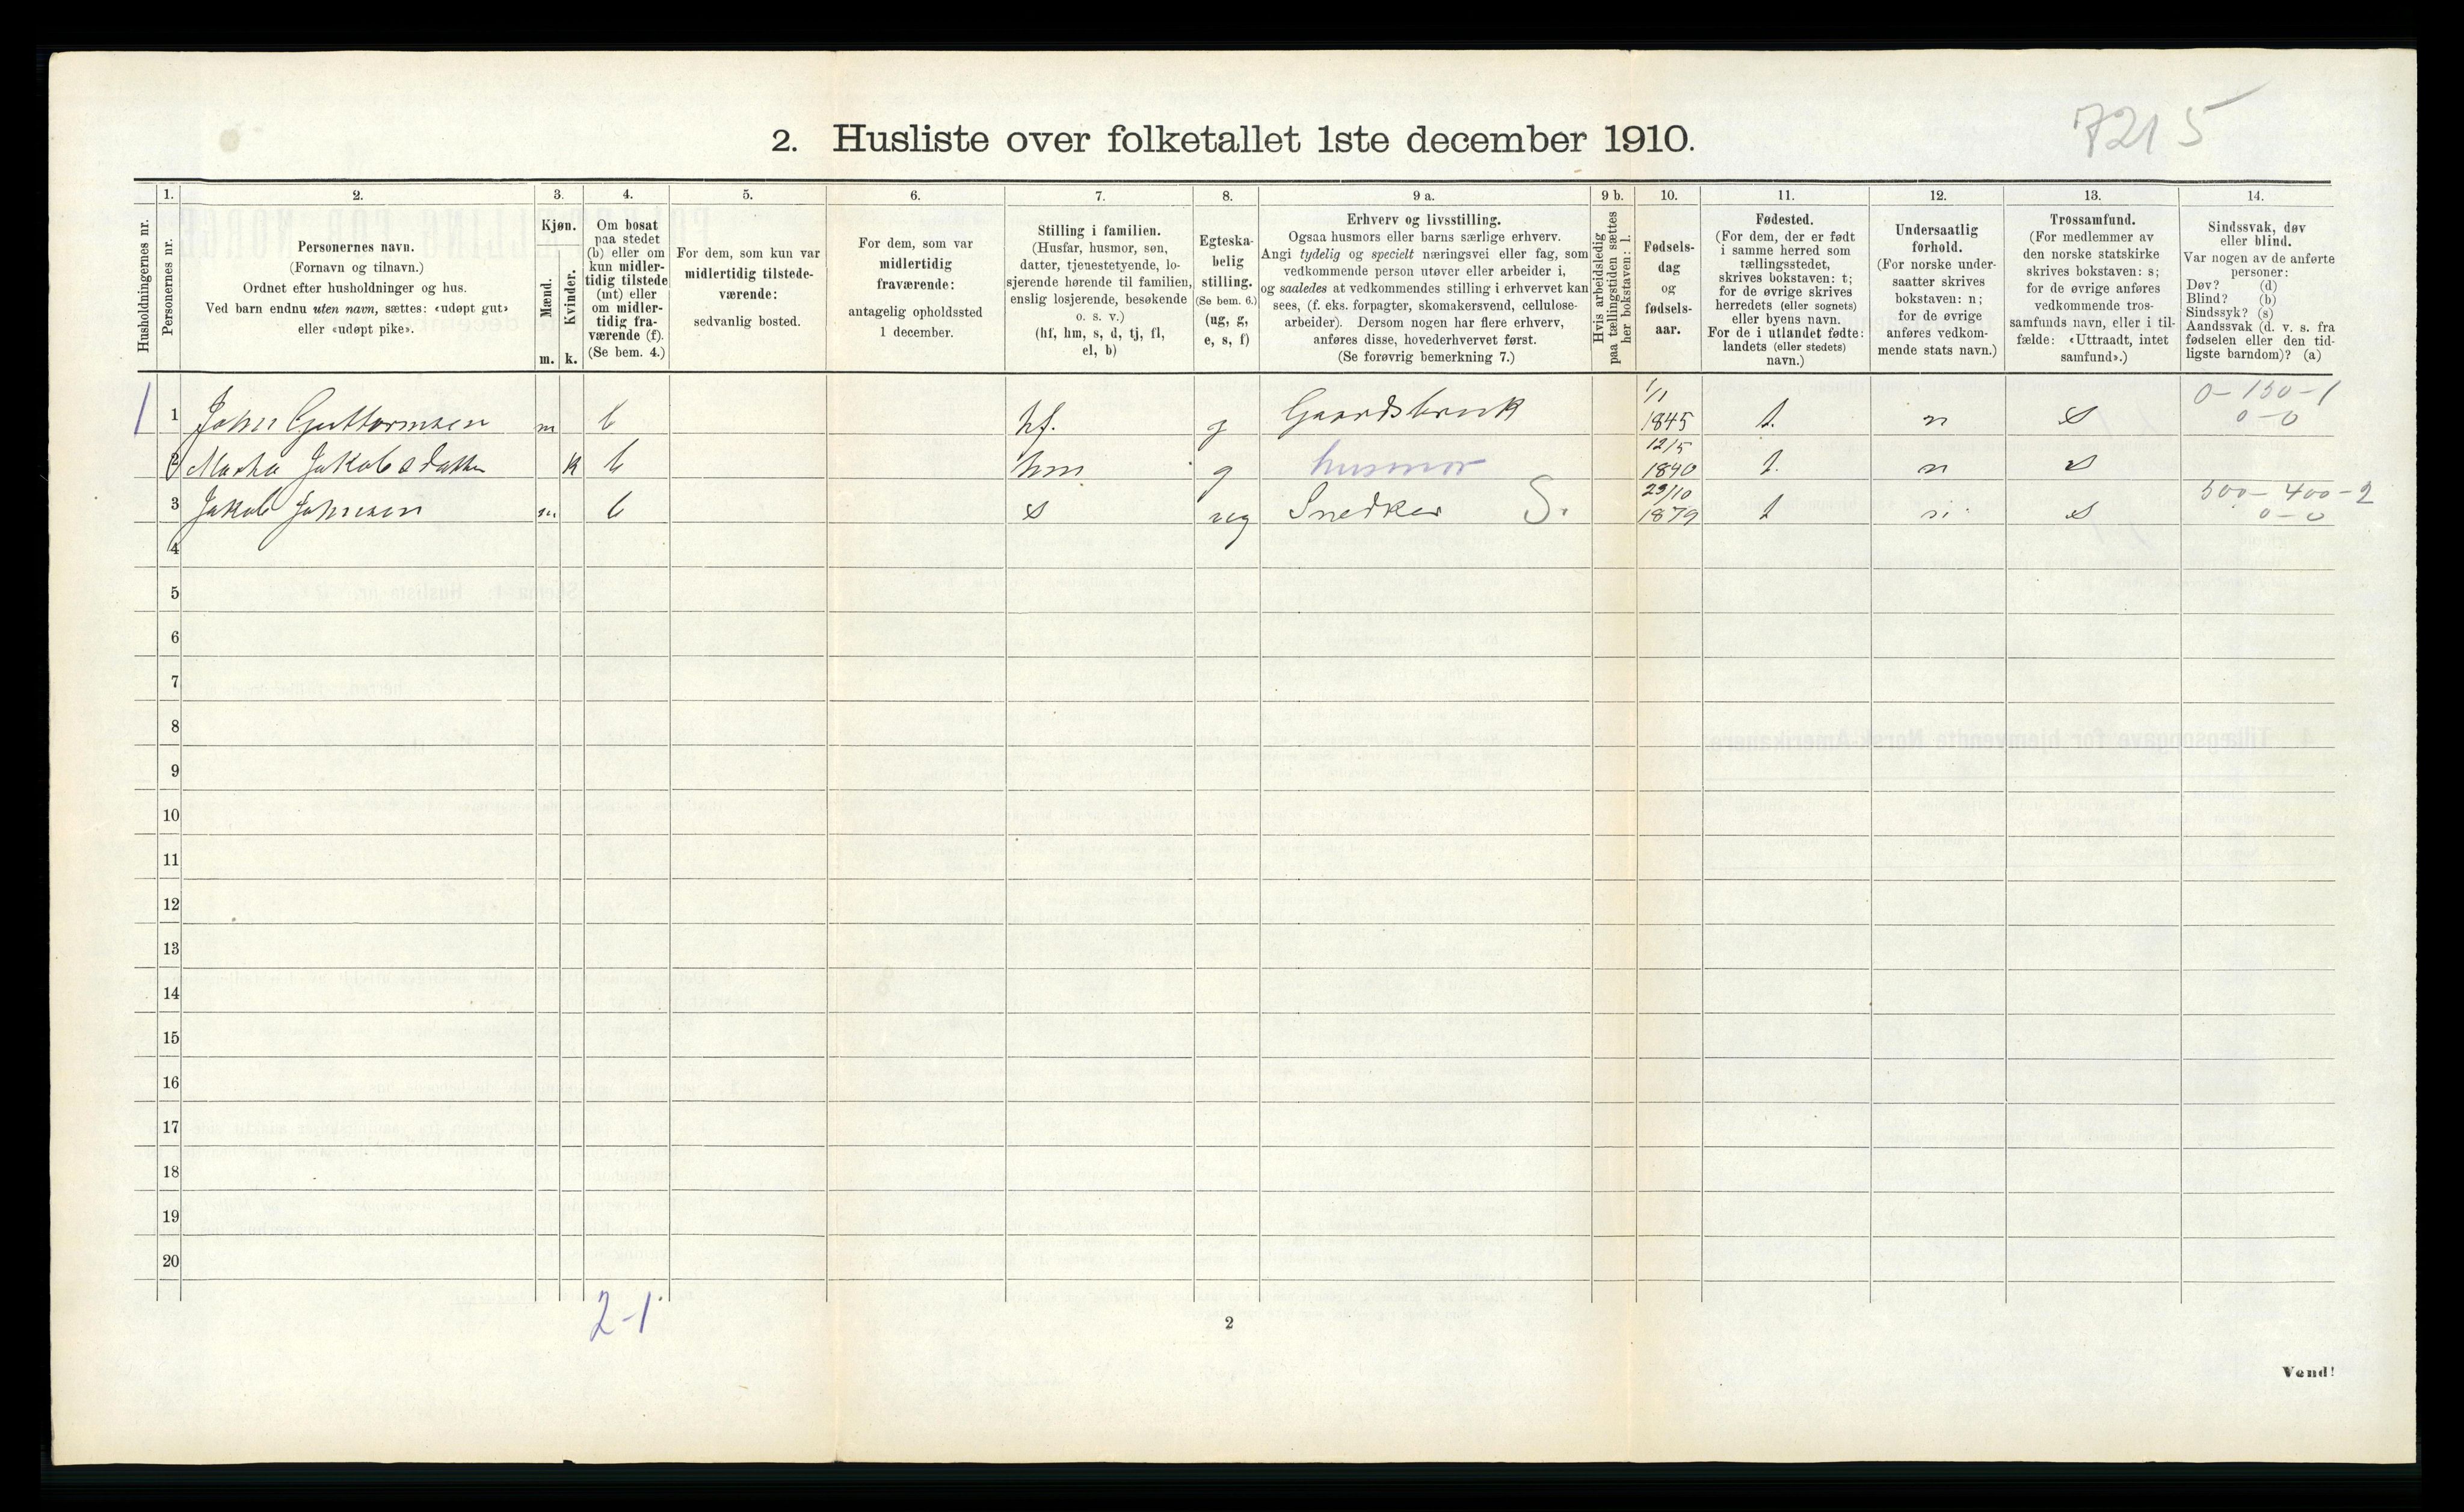 7215
2. Husliste over folketallet 1ste december 1910.
Husholdningernes nr.
1.
Personernes nr.
2.
Personernes navn.
(Fornavn og tilnavn.)
Ordnet efter husholdninger og hus.
Ved barn endnu uten navn, sættes: «udøpt gut»
eller «udøpt pike».
3.
Kjøn.
Mænd.
m.
Kvinder.
k.
4.
Om bosat
paa stedet
(b) eller om
kun midler-
tidig tilstede
(mt) eller
om midler-
tidig fra-
værende (f).
(Se bem. 4.)
5.
For dem, som kun var
midlertidig tilstede-
værende:
sedvanlig bosted.
6.
For dem, som var
midlertidig
fraværende:
antagelig opholdssted
1 december.
7.
Stilling i familien.
(Husfar, husmor, søn,
datter, tjenestetyende, lo-
sjerende hørende til familien,
enslig losjerende, besøkende
o. s. v.)
(hf, hm, s, d, tj, fl,
el, b)
8.
Egteska-
belig
stilling.
(Se bem. 6.)
(ug, g,
e, s, f)
9 a.
Erhverv og livsstilling.
Ogsaa husmors eller barns særlige erhverv.
Angi tydelig og specielt næringsvei eller fag, som
vedkommende person utøver eller arbeider i,
og saaledes at vedkommendes stilling i erhvervet kan
sees, (f. eks. forpagter, skomakersvend, cellulose-
arbeider). Dersom nogen har flere erhverv,
anføres disse, hovederhvervet først.
(Se forøvrig bemerkning 7.)
9 b.
Hvis arbeidsledig
paa tællingstiden sættes
her bokstaven: l.
10.
Fødsels-
dag
og
fødsels-
aar.
11.
Fødested.
(For dem, der er født
i samme herred som
tællingsstedet,
skrives bokstaven: t;
for de øvrige skrives
herredets (eller sognets)
eller byens navn.
For de i utlandet fødte:
landets (eller stedets)
navn.)
12.
Undersaatlig
forhold.
(For norske under-
saatter skrives
bokstaven: n;
for de øvrige
anføres vedkom-
mende stats navn.)
13.
Trossamfund.
(For medlemmer av
den norske statskirke
skrives bokstaven: s;
for de øvrige anføres
vedkommende tros-
samfunds navn, eller i til-
fælde: «Uttraadt, intet
samfund».)
14.
Sindssvak, døv
eller blind.
Var nogen av de anførte
personer:
Døv? (d)
Blind? (b)
Sindssyk? (s)
Aandssvak (d. v. s. fra
fødselen eller den tid-
ligste barndom)? (a)
1 1 John Guttormsen m b hf. g Gaardsbruk 1/1 1845 t. n s 0-150-1 0-0
2 Jakobsdatter k b hm g husmor 12/5 1840 t. n s
3 Jakob Johnsen m b s ug Snedker S. 29/10 1879 t n s 500-400-2 0-0
4
5
6
7
8
9
10
11
12
13
14
15
16
17
18
19
20
2-1
2
Vend!